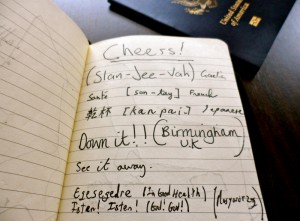 United States
of America
Cheers!
(Slan-Jee-Vah) Gaelic
Santé [son-tay] French
乾杯 [kanpai] Japanese
Down it!! (Birmingham UK)
See it away.
Egészségedre (In Good Health)
Isten! Isten! (God! God!)